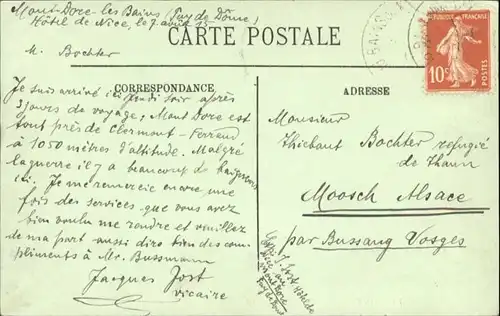 Mont-Dore-les Bains (Puy de Dôme)
Hôtel de Nice, le 7 août 15
CARTE POSTALE
M. Bochter
CORRESPONDANCE
Je suis arrivé ici jeudi soir après
3 jours de voyage, Mont Dore est
tout près de Clermont-Ferrand
à 1050 mètres d'altitude. Malgré
la guerre il y a beaucoup de baigneurs
ici. Je me remercie encore une
fois des services que vous avez
bien voulu me rendre et veuillez
de ma part aussi dire bien des com
pliments à Mr. Bussmann
Jacques Jost
vicaire
Mont Dore
ADRESSE
Monsieur
Thiebaut Bochter refugié
de Thann
Moosch Alsace
par Bussang Vosges
REPUBLIQUE FRANÇAISE
10c
POSTES